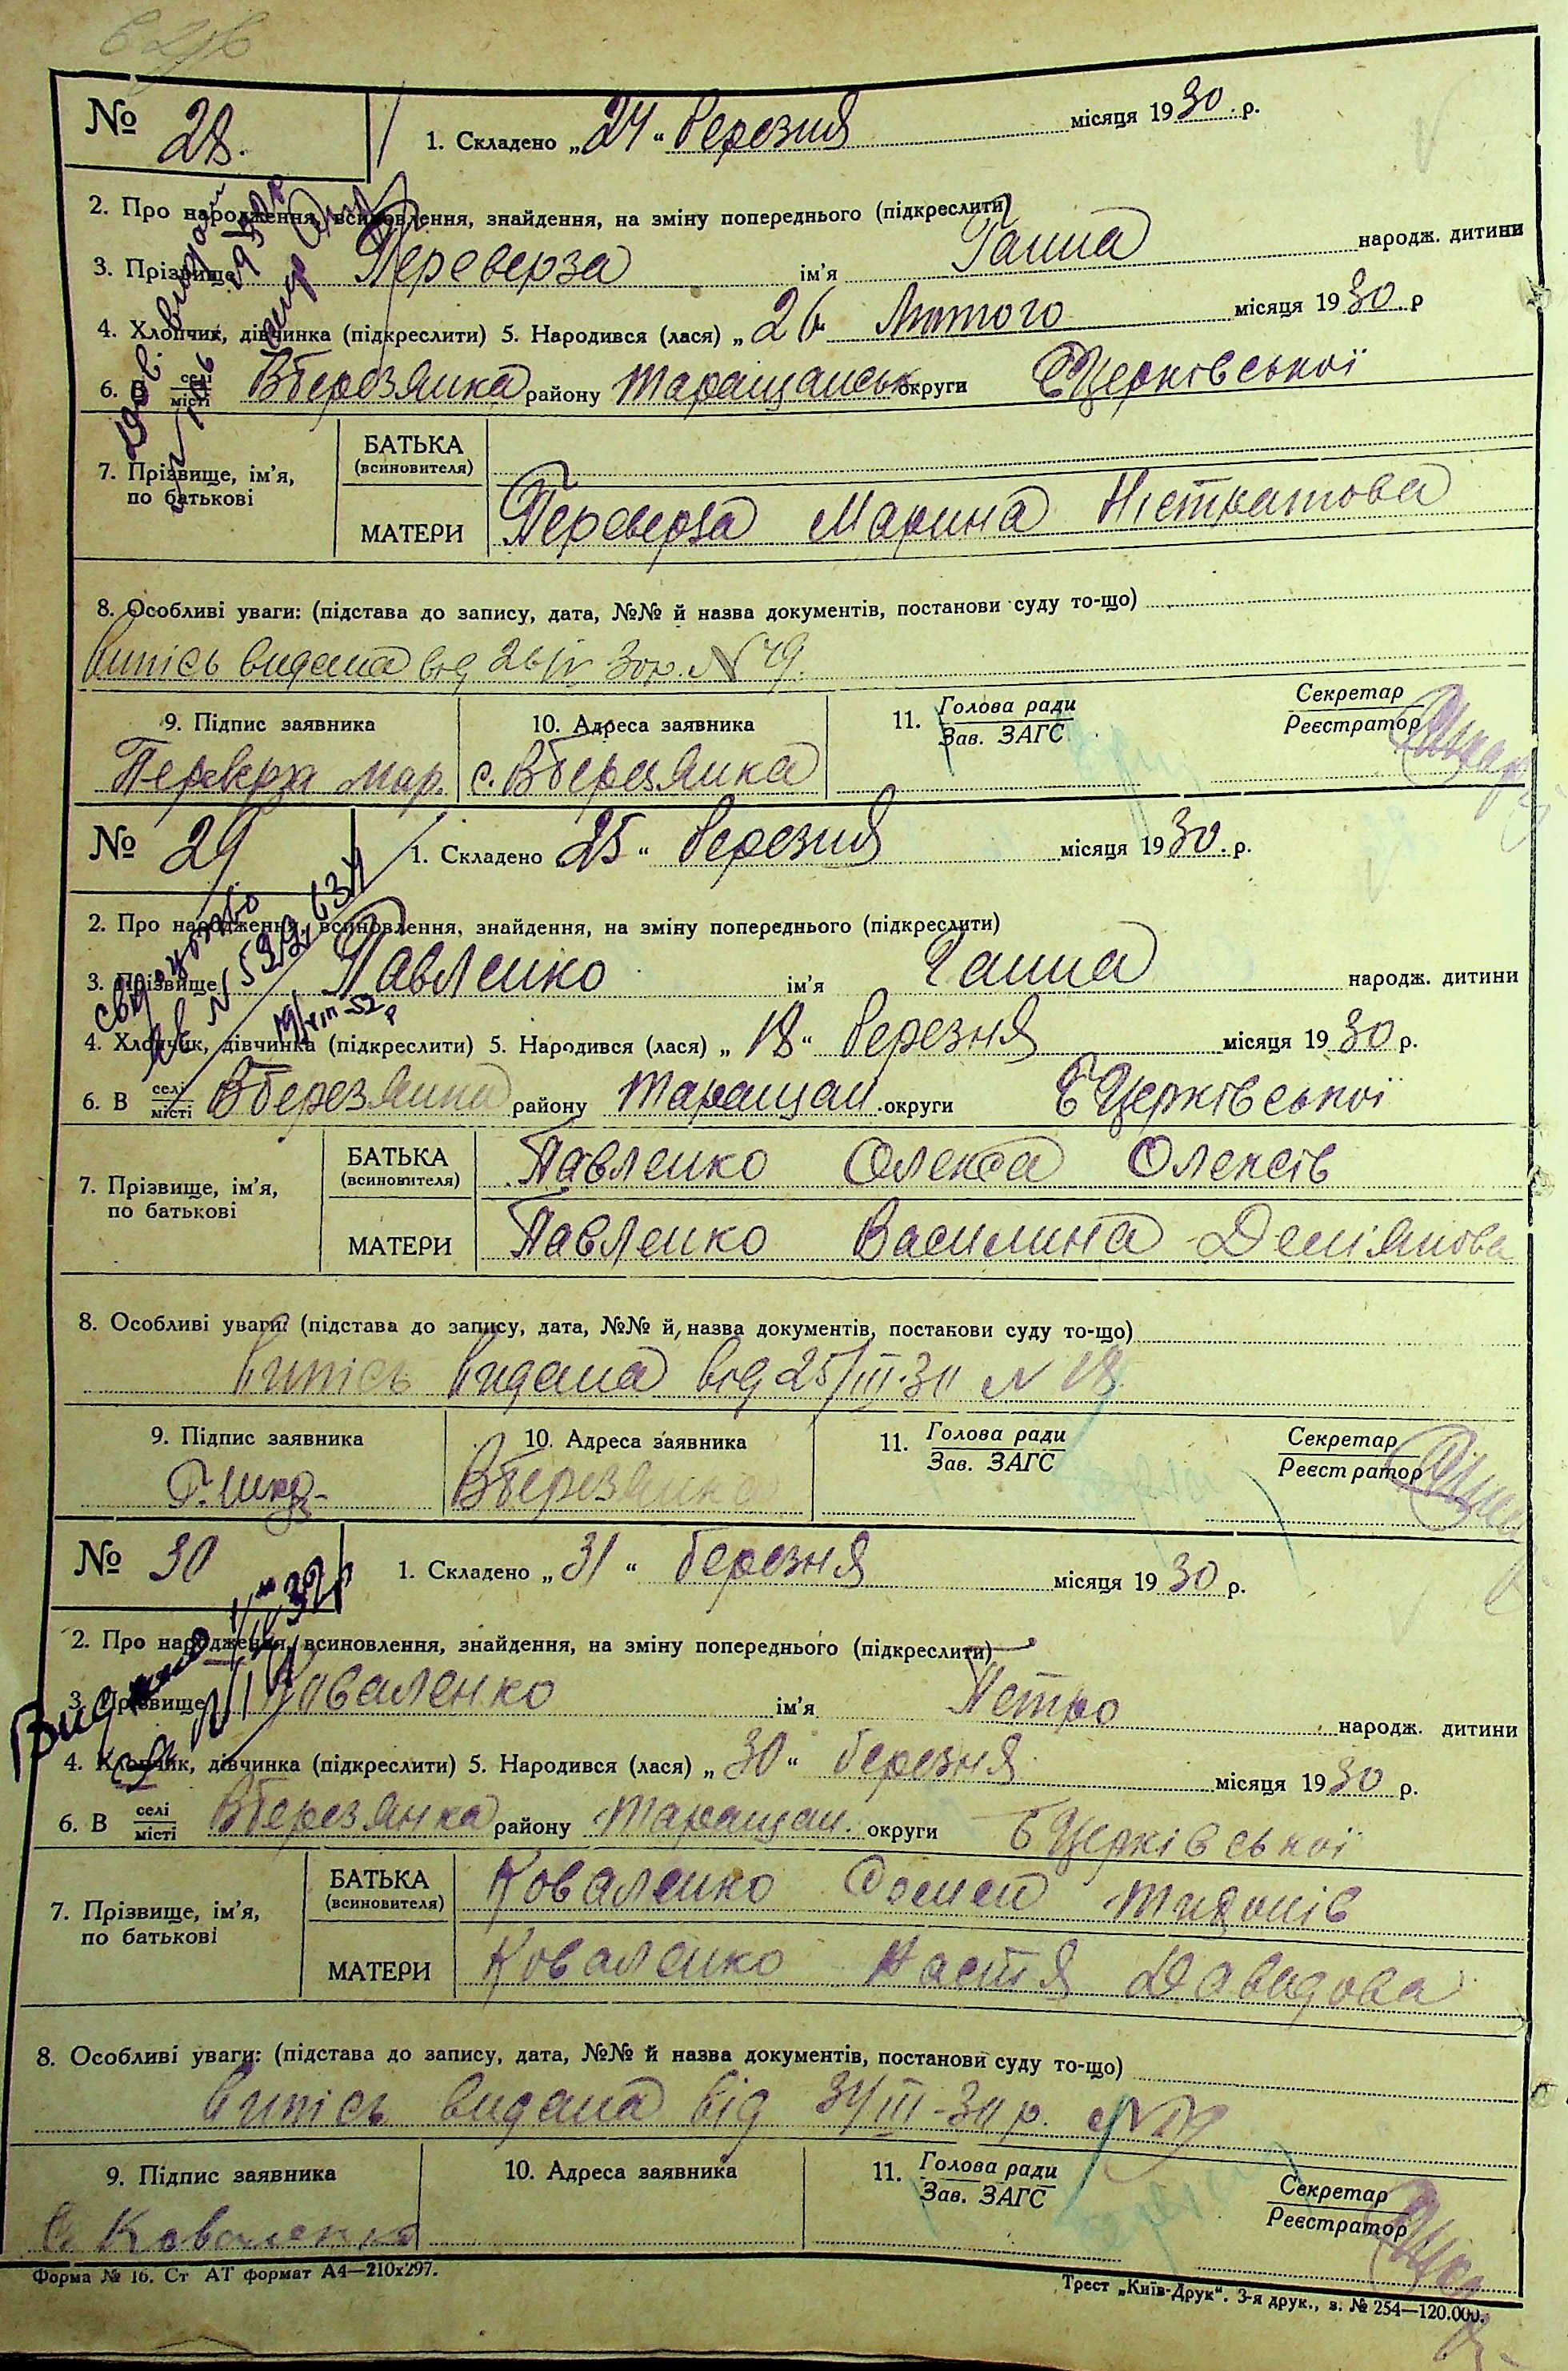 № 28. 1. Складено „24“ березня місяця 1930 р.
2. Про народження, всиновлення, знайдення, на зміну попереднього (підкреслити)
3. Прізвище Переверза ім'я Ганна народж. дитини
4. Хлопчик, дівчинка (підкреслити) 5. Народився (лася) „26 Лютого місяця 1930 р
6. В селі місті ВБерезянка району Таращанськ округи БЦерківської
7. Прізвище, ім'я, по батькові
БАТЬКА (всиновителя)
МАТЕРИ Переверза Марина Ністратова
8. Особливі уваги: (підстава до запису, дата, №№ й назва документів, постанови суду то-що)
Випісь видана від 26/IV 30р. N 49.
9. Підпис заявника 10. Адреса заявника 11. Голова ради Зав. ЗАГС Секретар Реєстратор
Переверза Мар. с. ВБерезянка
№ 29 1. Складено 25“ березня місяця 1930. р.
2. Про народження, всиновлення, знайдення, на зміну попереднього (підкреслити)
3. Прізвище Павленко ім'я Ганна народж. дитини
4. Хлопчик, дівчинка (підкреслити) 5. Народився (лася) „18“ березня місяця 1930 р.
6. В селі місті ВБерезянка району Таращан. округи БЦерківської
7. Прізвище, ім'я, по батькові
БАТЬКА (всиновителя) Павленко Олекса Олексів
МАТЕРИ Павленко Василина Деміянова
8. Особливі уваги: (підстава до запису, дата, №№ й назва документів, постанови суду то-що)
Випісь видана від 25/III-30 N 18
9. Підпис заявника 10. Адреса заявника 11. Голова ради Зав. ЗАГС Секретар Реєстратор
ВБерезянка
№ 30 1. Складено „31“ березня місяця 1930 р.
2. Про народження, всиновлення, знайдення, на зміну попереднього (підкреслити)
3. Прізвище Коваленко ім'я Петро народж. дитини
4. Хлопчик, дівчинка (підкреслити) 5. Народився (лася) „30“ березня місяця 1930 р.
6. В селі місті ВБерезянка району Таращан. округи БЦерківської
7. Прізвище, ім'я, по батькові
БАТЬКА (всиновителя) Коваленко
МАТЕРИ Коваленко Настя Давидова
8. Особливі уваги: (підстава до запису, дата, №№ й назва документів, постанови суду то-що)
Випісь видана від 31/III-30 р.
9. Підпис заявника 10. Адреса заявника 11. Голова ради Зав. ЗАГС Секретар Реєстратор
Коваленко
Форма № 16. Ст АТ формат А4—210х297. Трест „Київ-Друк“. 3-я друк., з. № 254—120.000.